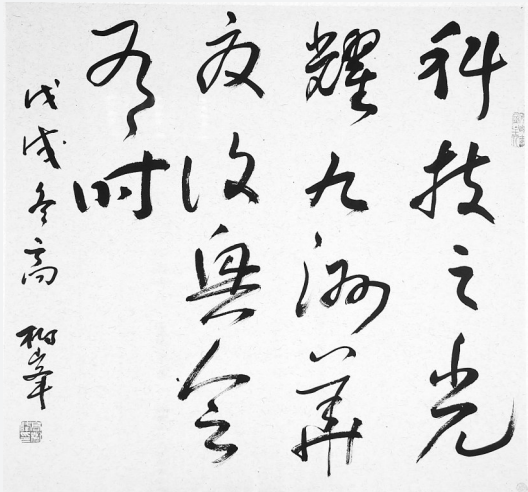 科技之光
耀九洲華
夏復興会
有时
戊戌冬高峯